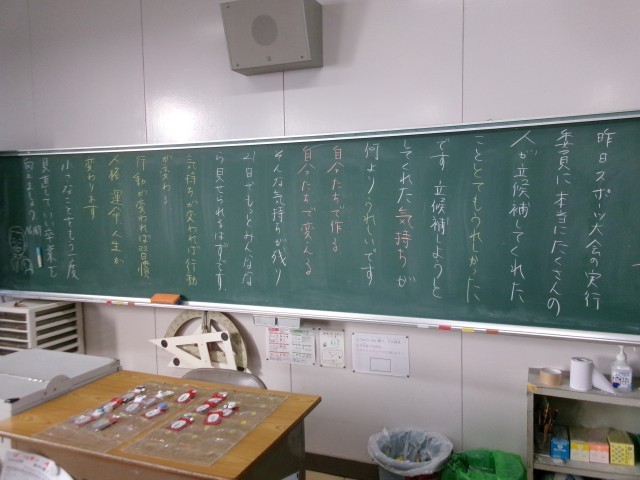 昨日スポーツ大会の実行
委員に本当にたくさんの
人が立候補してくれた
こととてもうれしかった
です 立候補しようと
してくれた気持ちが
何よりうれしいです
自分たちで作る
自分たちで変える
そんな気持ちが残り
21日でもっとみんなな
ら見せられるはずです。
気持ちが変われば行動
が変わる
行動が変われば習慣、
人格 運命 人生が
変わります
小さなことでももう一度
見直していい卒業を